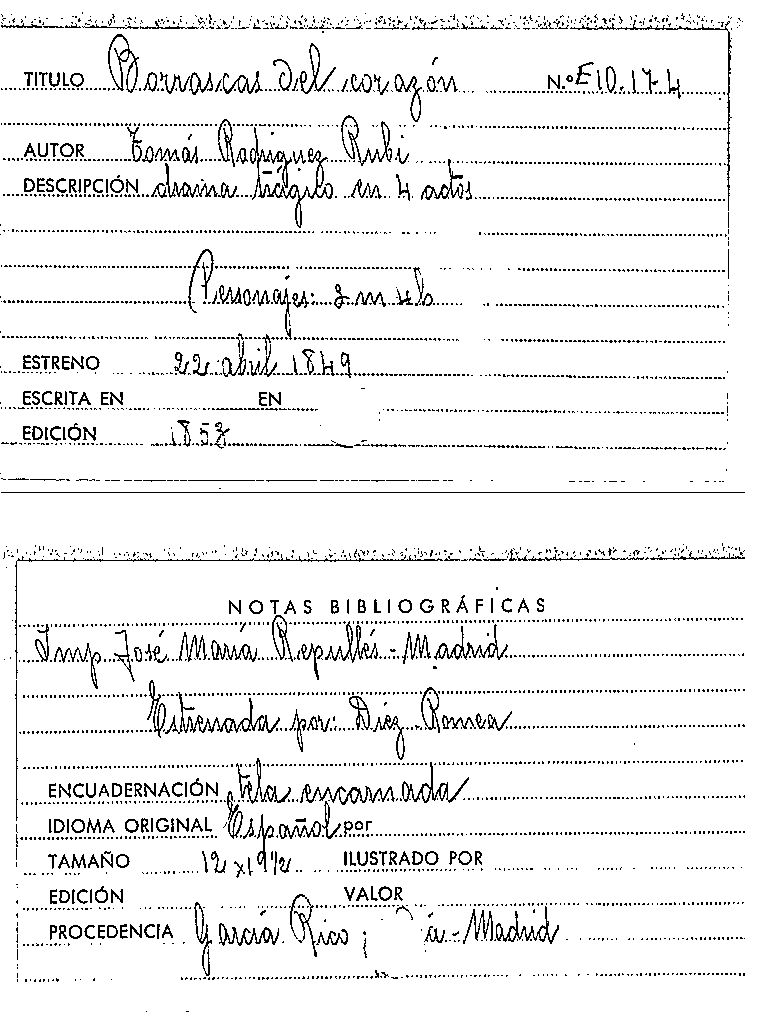 TITULO Borrascas del corazón N.º E10.17-4
AUTOR Tomás Rodriguez Rubi
DESCRIPCIÓN drama trágico en 4 actos
(Personajes: 2 m 4 h
ESTRENO 22 abril 1849
ESCRITA EN EN
EDICIÓN
NOTAS BIBLIOGRÁFICAS
Imp José María Repullés - Madrid
Estrenada por: Díez - Romea
ENCUADERNACIÓN tela encarnada
IDIOMA ORIGINAL Español por
TAMAÑO 12 x 19 1/2 ILUSTRADO POR
EDICIÓN VALOR
PROCEDENCIA García Rico; - Madrid